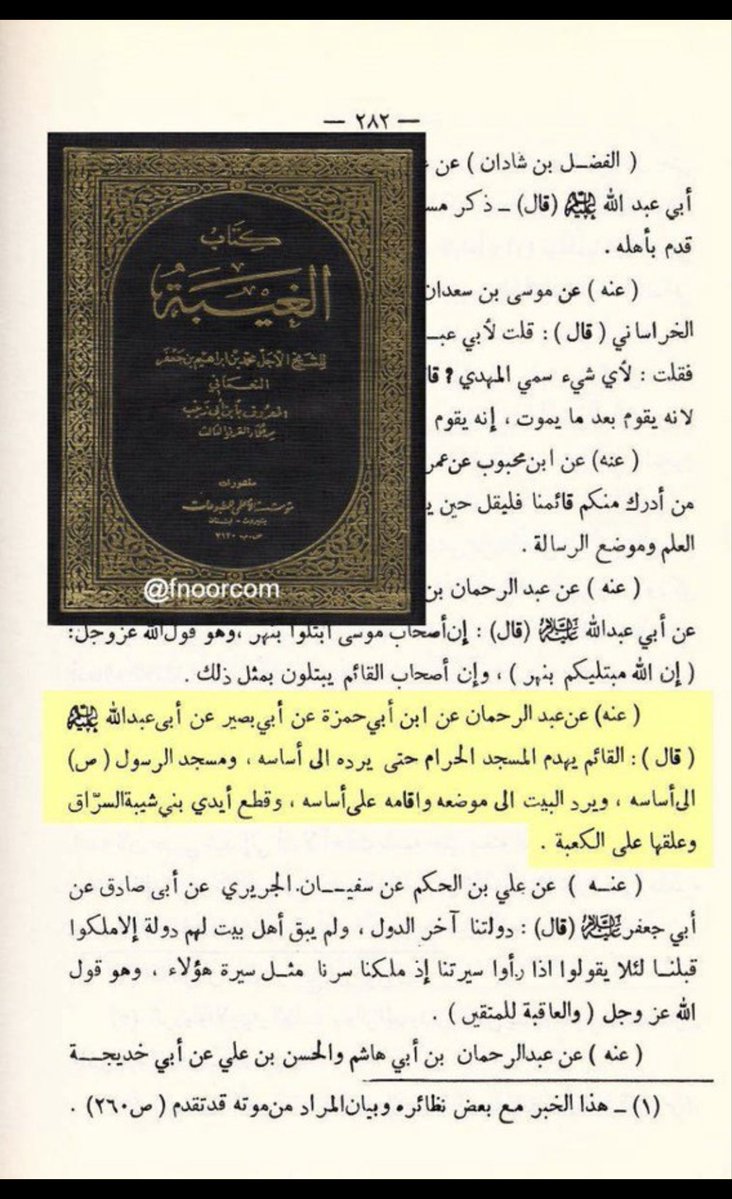 — ٢٨٢ —
( الفضـل بن شادان ) عن
أبي عبد الله عليه السلام (قال) ـ ذكر
قدم بأهله .
( عنه ) عن موسى بن سعدان
الخراساني ( قال ) : قلت لأبي
فقلت : لأي شيء سمي المهدي ؟
لانه يقوم بعد ما يموت ، إنه يقوم
( عنه) عن ابن محبوب عن
من أدرك منكم قائمنا فليقل حين
العلم وموضع الرسالة .
( عنه ) عن عبد الرحمان بن
عن أبي عبدالله عليه السلام (قال) : إن أصحاب موسى ابتلوا بنهر ، وهو قول الله عز وجل :
( إن الله مبتليكم بنهر ) ، وإن أصحاب القائم يبتلون بمثل ذلك .
( عنه) عن عبد الرحمان عن ابن أبي حمزة عن أبي بصير عن أبى عبدالله عليه السلام
( قال ) : القائم يهدم المسجد الحرام حتى يرده الى أساسه ، ومسجد الرسول ( ص )
الى أساسه ، ويرد البيت الى موضعه واقامه على أساسه ، وقطع أيدي بني شيبة السرّاق
وعلقها على الكعبة .
( عنـه ) عن علي بن الحكم عن سفيـــان الجريري عن أبى صادق عن
أبي جعفر عليه السلام (قال) : دولتنا آخر الدول ، ولم يبق أهل بيت لهم دولة إلا ملكوا
قبلنـا لئلا يقولوا اذا رأوا سيرتنا إذ ملكنا سرنا مثـل سيرة هؤلاء ، وهو قول
الله عز وجل ( والعاقبة للمتقين ) .
( عنه ) عن عبدالرحمان بن أبي هاشم والحسن بن علي عن أبي خديجـــة
(١) ـ هذا الخبر مع بعض نظائره وبيان المراد من موته قد تقدم ( ص٢٦٠ ) .
كتاب
الغيبة
للشيخ الاجل محمد بن ابراهيم بن جعفر
النعماني
المعروف بابن أبي زينب
منشورات
مؤسسة الأعلمي للمطبوعات
بيروت - لبنان
ص.ب ٧١٢٠
@fnoorcom